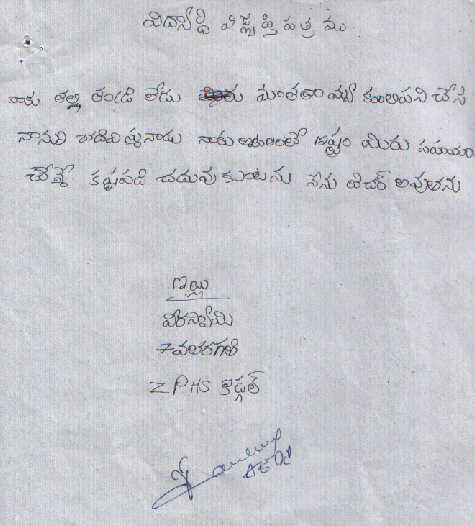 విద్యార్థి విజ్ఞప్తి పత్రము
నాకు తల్లి తండ్రి లేడు మా తాతమ్మ కూలిపని చేసి
నానుని చదివిస్తునాడు నాకు ఆటలంటే ఇష్టం మీరు సహయం
చేస్తే కష్టపడి చదువుకుంటును నేను టిచర్ అవుతాను
ఇట్లు
వీరస్వామి
7వతరగతి
ZPHS కొడ్గల్